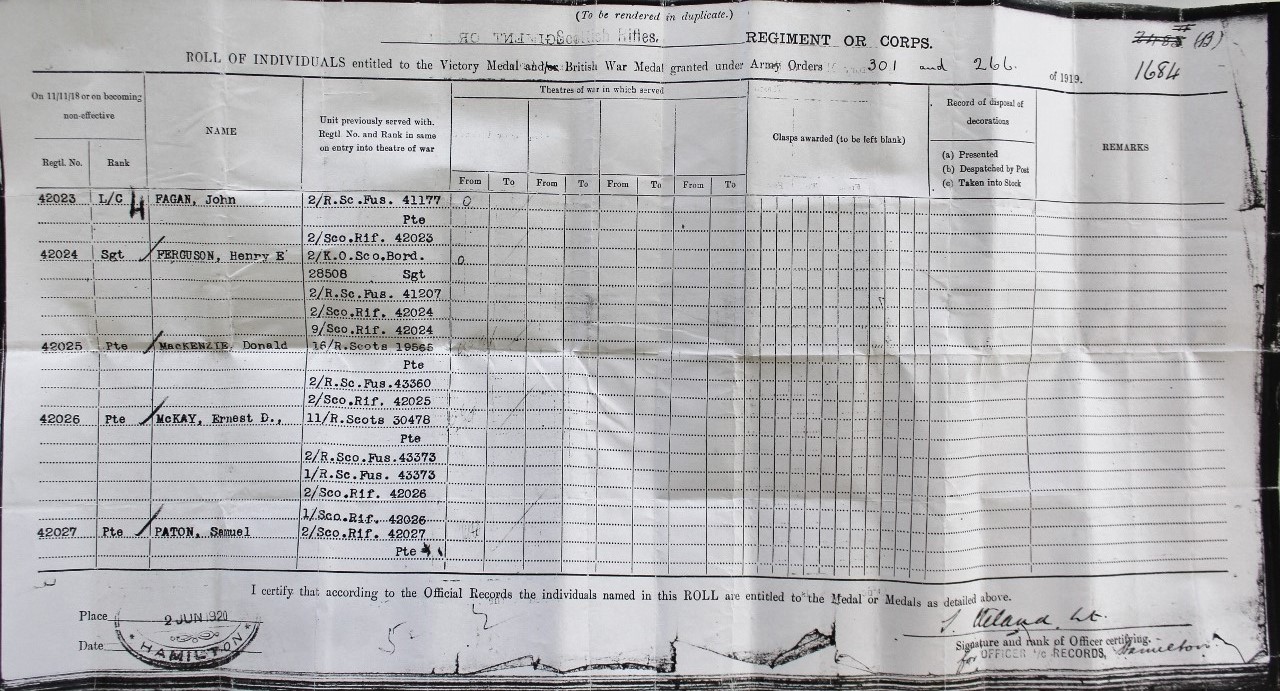 (To be rendered in duplicate.)
Scottish Rifles. REGIMENT OR CORPS.
(B)
ROLL OF INDIVIDUALS entitled to the Victory Medal and/or British War Medal granted under Army Orders 301 and 266. of 1919.
1684
On 11/11/18 or on becoming non-effective
NAME
Unit previously served with. Regtl. No. and Rank in same on entry into theatre of war
Theatres of war in which served
Clasps awarded (to be left blank)
Record of disposal of decorations
(a) Presented
(b) Despatched by Post
(c) Taken into Stock
REMARKS
Regtl. No. Rank
From To From To From To From To
42023 L/C FAGAN, John 2/R.Sc.Fus. 41177
Pte
2/Sco.Rif. 42023
42024 Sgt FERGUSON, Henry E 2/K.O.Sco.Bord.
28508 Sgt
2/R.Sc.Fus. 41207
2/Sco.Rif. 42024
9/Sco.Rif. 42024
42025 Pte MacKENZIE, Donald 16/R.Scots 19565
Pte
2/R.Sc.Fus.43360
2/Sco.Rif. 42025
42026 Pte McKAY, Ernest D., 11/R.Scots 30478
Pte
2/R.Sc.Fus.43373
1/R.Sc.Fus. 43373
2/Sco.Rif. 42026
1/Sco.Rif. 42026
42027 Pte PATON, Samuel 2/Sco.Rif. 42027
Pte
I certify that according to the Official Records the individuals named in this ROLL are entitled to the Medal or Medals as detailed above.
Place
2 JUN 1920
Date
HAMILTON
Lt.
Signature and rank of Officer certifying.
for OFFICER i/c RECORDS, Hamilton.